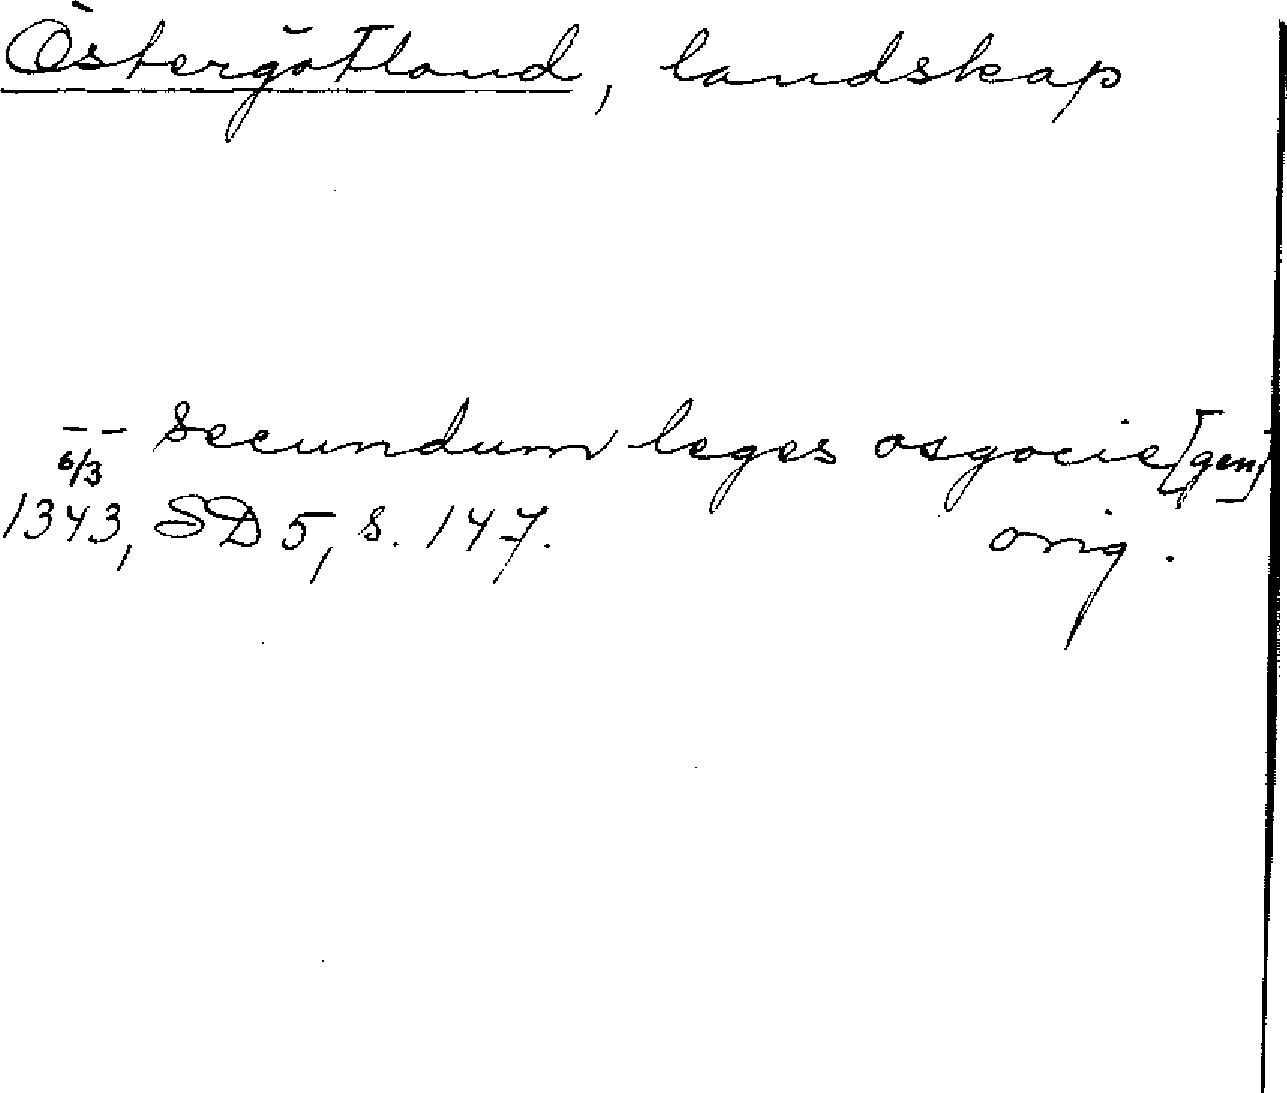 Östergötland, landskap
-- secundum leges osgocie [gen]
6/3
1343, SD 5, s. 147. orig.